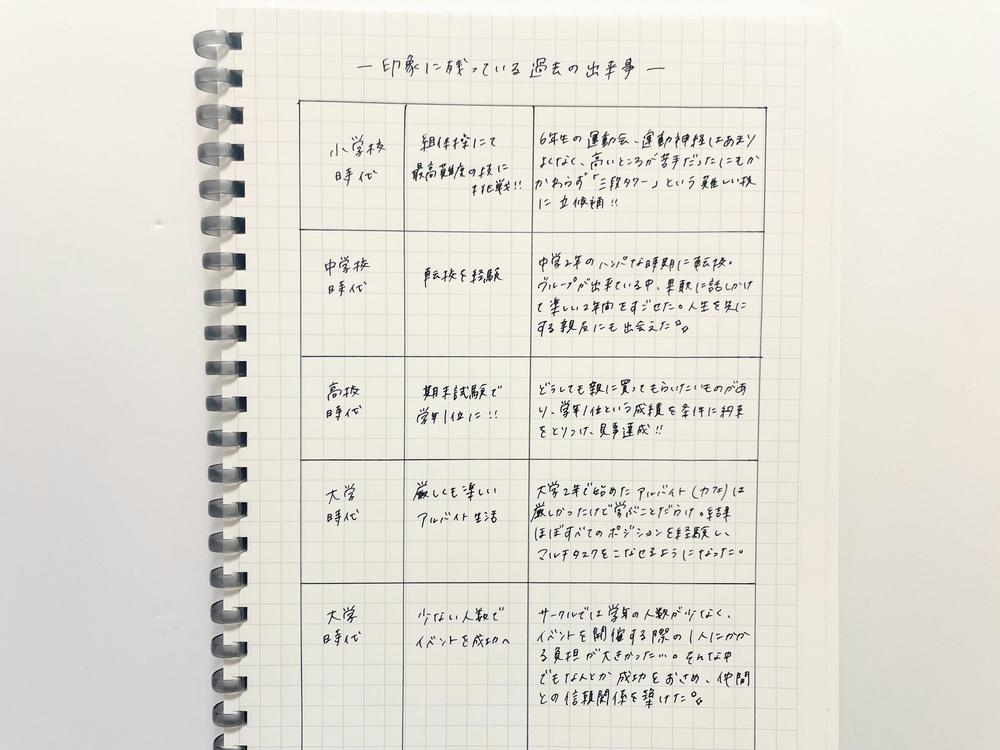 ― 印象に残っている過去の出来事 ―
小学校
時代
組体操にて
最高難度の技に
挑戦!!
6年生の運動会、運動神経はあまり
よくなく、高いところが苦手だったにもか
かわらず「三段タワー」という難しい技
に立候補!!
中学校
時代
転校を経験
中学2年のハンパな時期に転校。
グループが出来ている中、果敢に話しかけ
て楽しい2年間をすごせた。人生を共に
する親友にも出会えた。
高校
時代
期末試験で
学年1位に!!
どうしても親に買ってもらいたいものがあ
り、学年1位という成績を条件に約束
をとりつけ、見事達成!!
大学
時代
厳しくも楽しい
アルバイト生活
大学2年で始めたアルバイト(カフェ)は
厳しかったけど学ぶことだらけ。結果
ほぼすべてのポジションを経験し、
マルチタスクをこなせるようになった。
大学
時代
少ない人数で
イベントを成功へ
サークルでは学年の人数が少なく、
イベントを開催する際の1人にかか
る負担が大きかった…。そんな中
でもなんとか成功をおさめ、仲間
との信頼関係を築けた。